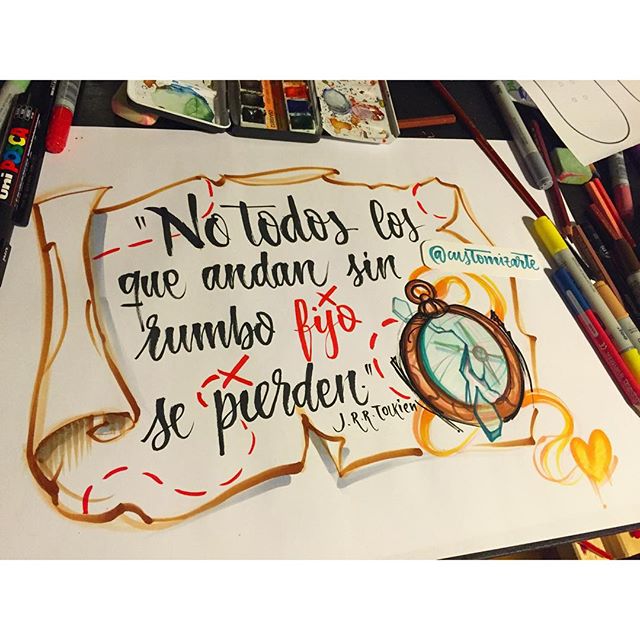 "No todos los
que andan sin
rumbo fijo
se pierden."
J.R.R.Tolkien
@customizarte
uni POSCA